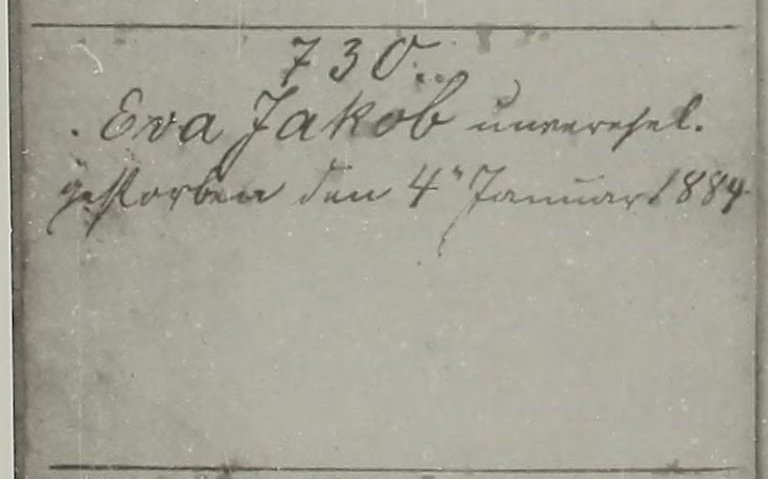 730.
Eva Jakob unverehel.
gestorben den 4" Januar 1884.